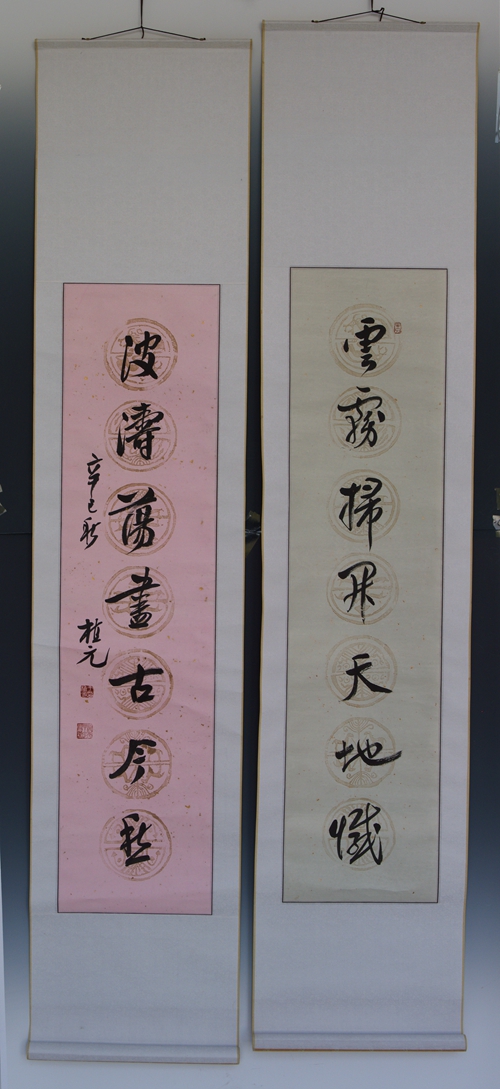 雲霧掃開天地憾
波濤蕩盡古今愁
辛巳秋 植元